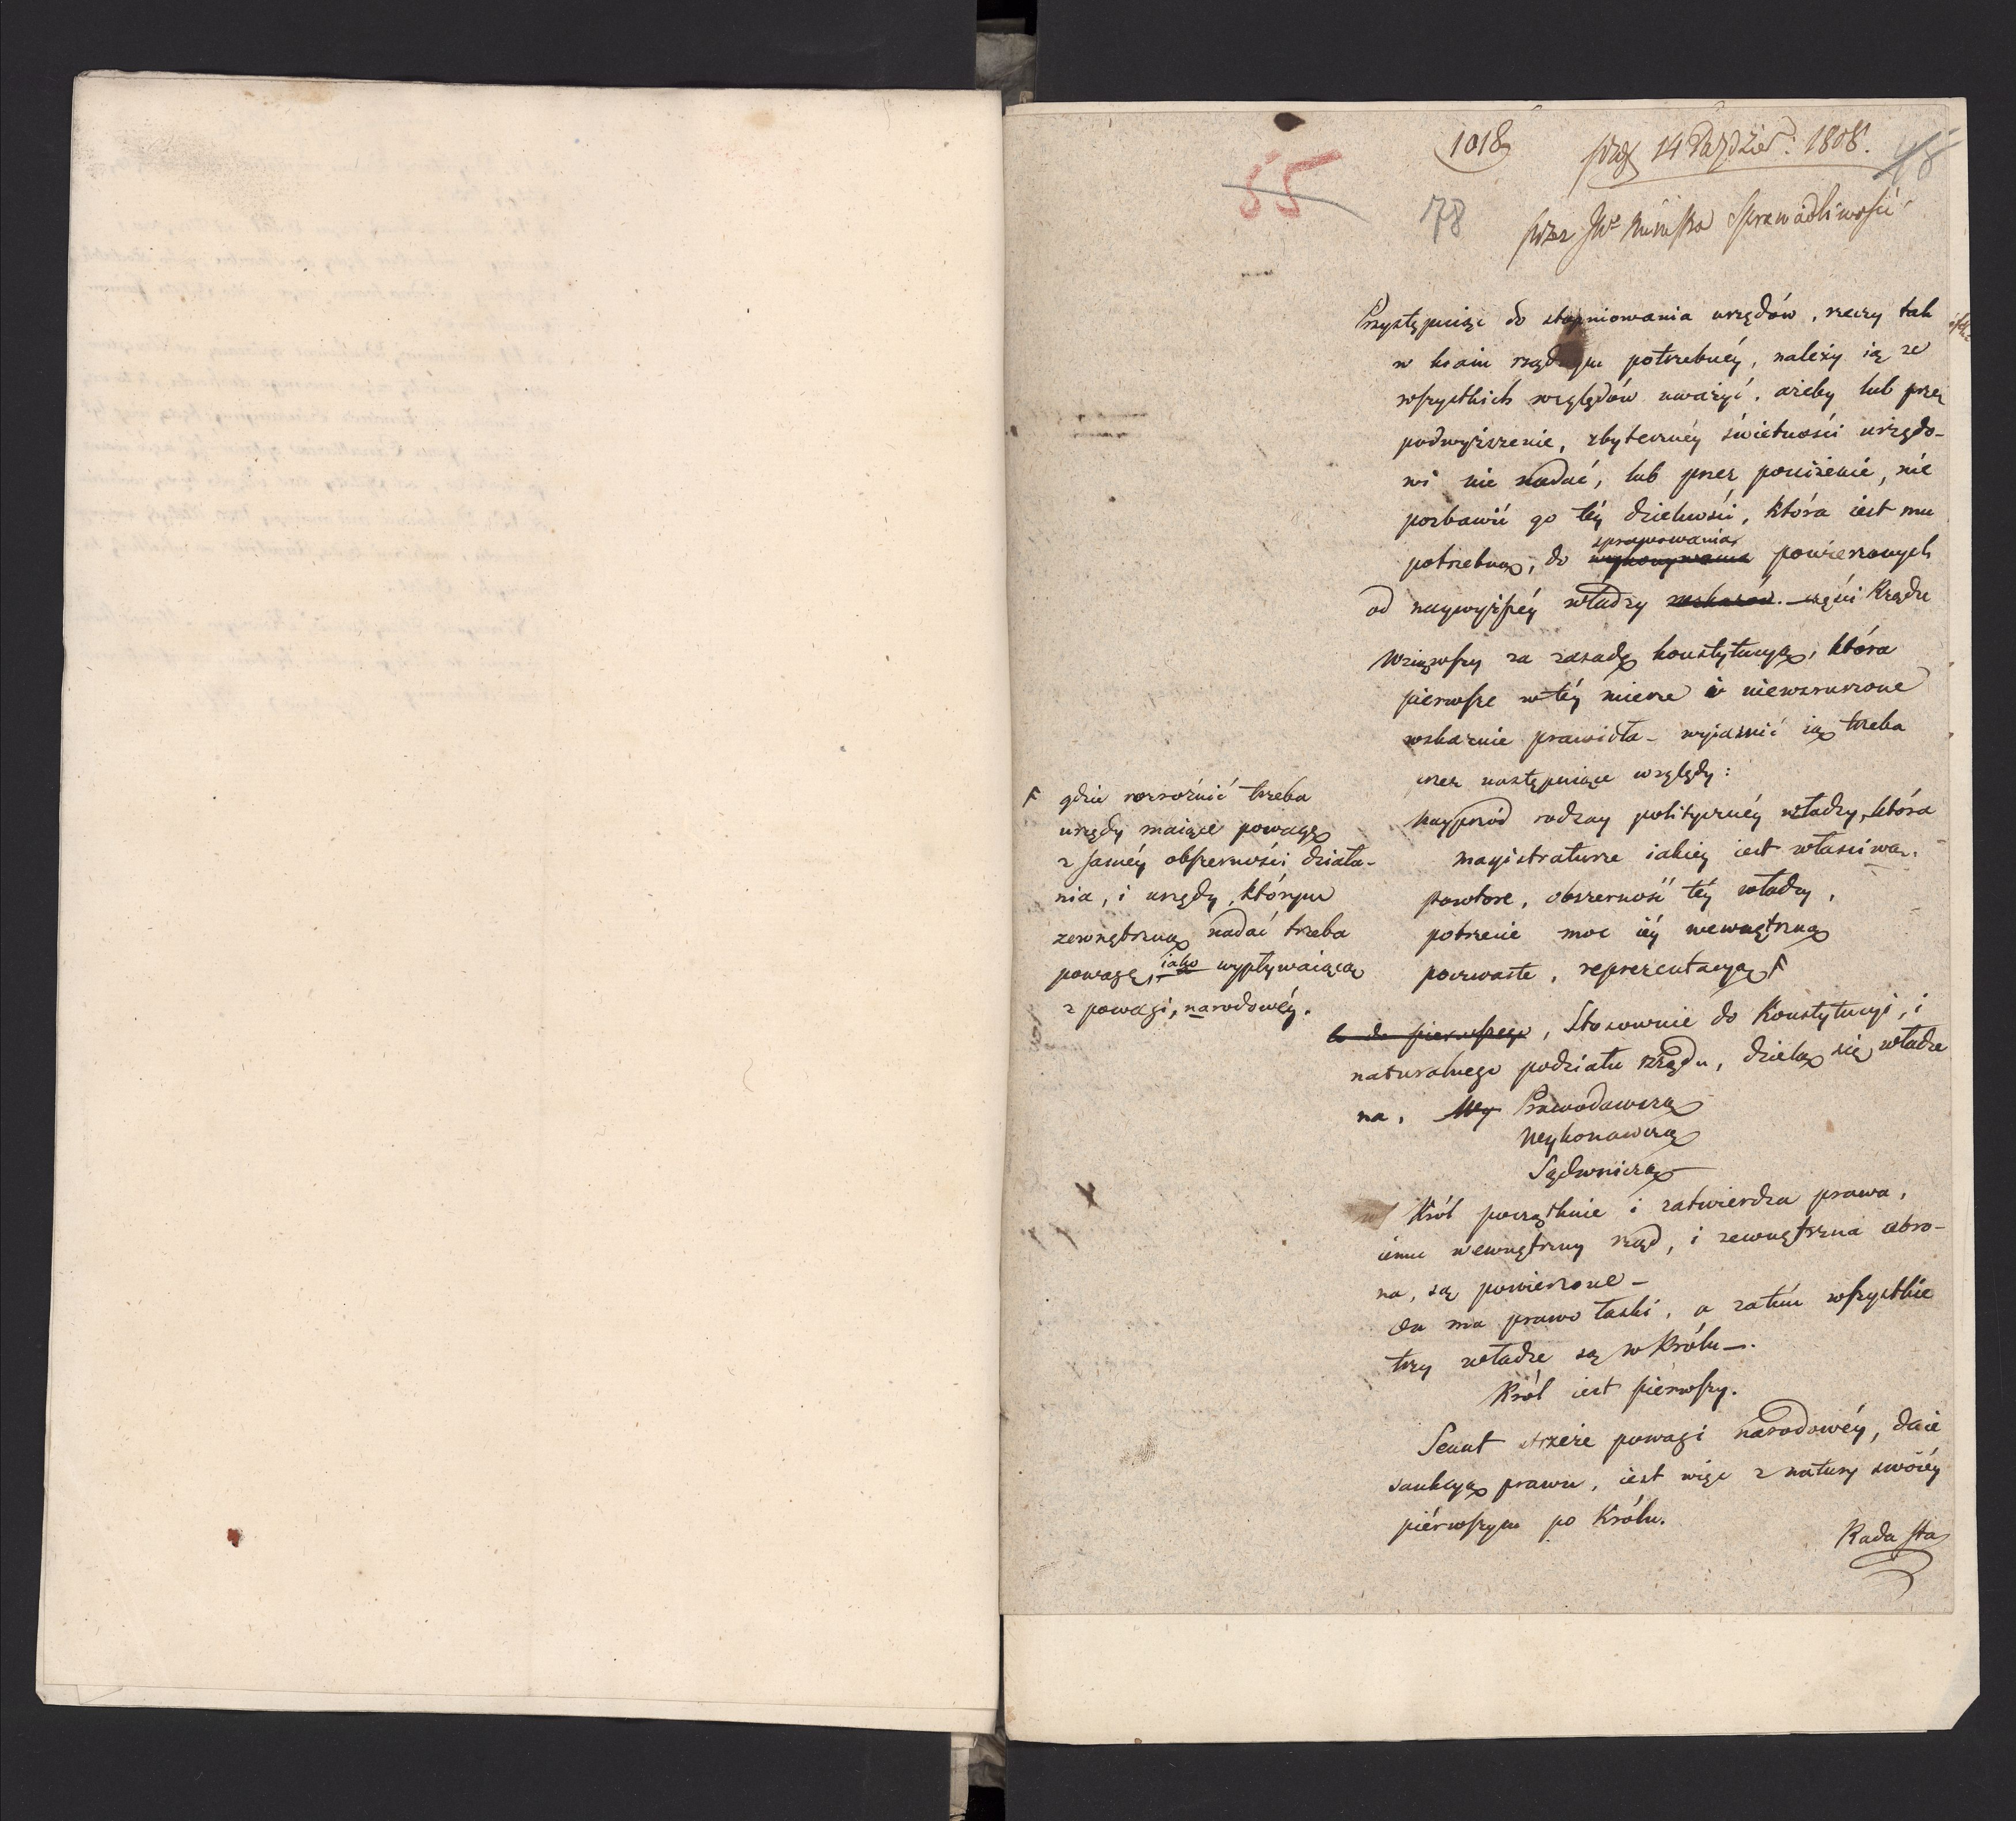 1018
14 Paździer: 1808.
48
55
78
przez JW Ministra Sprawiedliwości
Przystępuiąc do stopniowania urzędów, rzeczy tak
w kraiu rządnym potrzebnéy, należy ią ze
wszystkich względów uważyć, ażeby lub przez
podwyższenie, zbyteczney świetności urzędo-
wi nie nadać, lub przez poniżenie, nie
pozbawić go téy dzielności, która iest mu
potrzebną, do wykonywania sprawowania powierzonych
od naywyższéy władzy części Rządu
Wziąwszy za zasadę konstytucyą, która
pierwsze w téy mierze i niewzruszone
wskazuie prawidła – wyiaśnić ią trzeba
przez następuiące względy:
Nayprzód rodzay polityczney władzy, która
magistraturze iakiey iest właściwa.
powtore, obszerność téy władzy,
potrzecie moc iéy wewnętrzną
poczwarte, reprezentacyą F
F gdzie rozrożnić trzeba
urzędy maiące powagę
z saméy obszerności działa-
nia, i urzędy, którym
zewnętrzną nadać trzeba
powagę, iako wypływaiącą
z powagi, narodowéy.
Co do pierwszego, Stosownie do Konstytucyi, i
naturalnego podziału rządu, dzielą się władze
na, Wy Prawodawczą
Wykonawczą
Sądowniczą
Król początkuie i zatwierdza prawa,
iemu wewnętrzny rząd, i zewnętrzna obro-
na, są powierzone –
On ma prawo łaski, a zatém wszystkie
trzy władze są w Królu –.
Król iest piérwszy.
Senat strzeże powagi narodowéy, daie
sankcyą prawu, iest więc z natury swoiéy
piérwszym po Królu.
Rada Sta